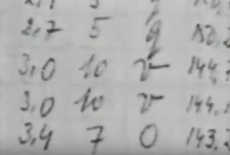 2,7 5 g 150,
3,0 10 v 144,
3,0 10 v 144,
3,4 7 0 143,2